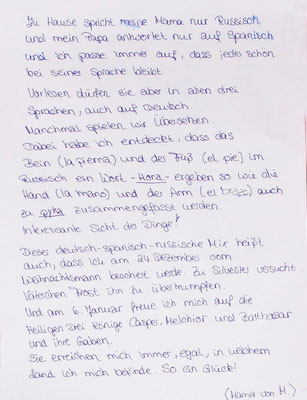 Zu Hause spricht meine Mama nur Russisch
und mein Papa antwortet nur auf Spanisch
und ich passe immer auf, dass jedes schön
bei seiner Sprache bleibt.
Vorlesen dürfen sie aber in allen drei
Sprachen, auch auf Deutsch.
Manchmal spielen wir Übersetzen.
Dabei habe ich entdeckt, dass das
Bein (la pierna) und der Fuß (el pie) im
Russisch ein Wort - Нога - ergeben so wie die
Hand (la mano) und der Arm (el brazo) auch
zu рука zusammengefasst werden.
Interessante Sicht der Dinge!
Dieser deutsch-spanisch-russische Mix heißt
auch, dass ich am 24 Dezember vom
Weihnachtsmann beschert werde. Zu Silvester versucht
Väterchen Frost ihn zu übertrumpfen.
Und am 6. Januar freue ich mich auf die
Heiligen drei Könige Casper, Melchior und Balthasar
und ihre Gaben.
Sie erreichen mich immer, egal, in welchem
Land ich mich befinde. So ein Glück!
(Mama von M.)